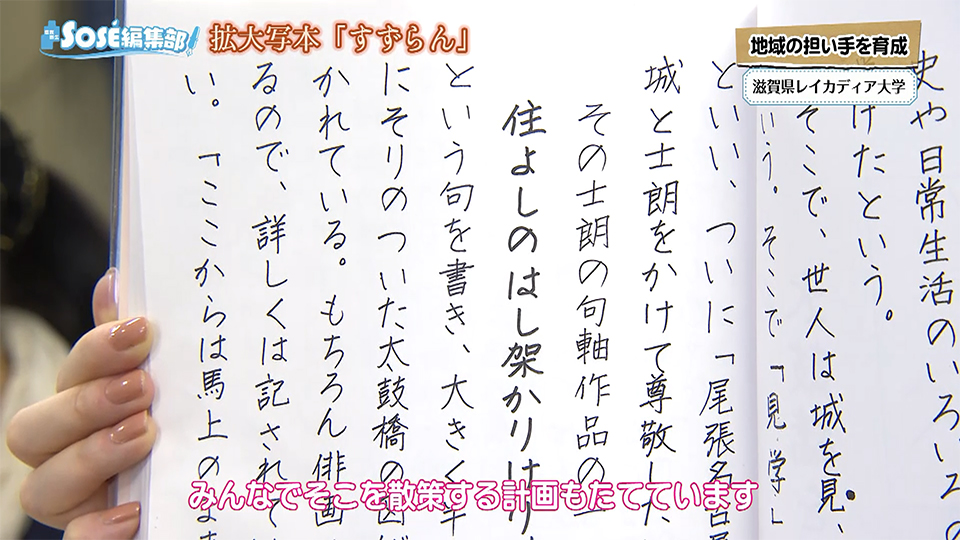 滋賀県社会福祉
SOSÉ編集部
拡大写本「すずらん」
地域の担い手を育成
滋賀県レイカディア大学
史や日常生活のいろいろの
けたという。
そこで、世人は城を見、
いう。そこで「見学」
といい、ついに「尾張名古屋
城と士朗をかけて尊敬した
その士朗の句軸作品の一
住よしのはし架かりけり
という句を書き、大きく半
にそりのついた太鼓橋の図が
かれている。もちろん俳画
るので、詳しくは記されて
い。「ここからは馬上のま
みんなでそこを散策する計画もたてています